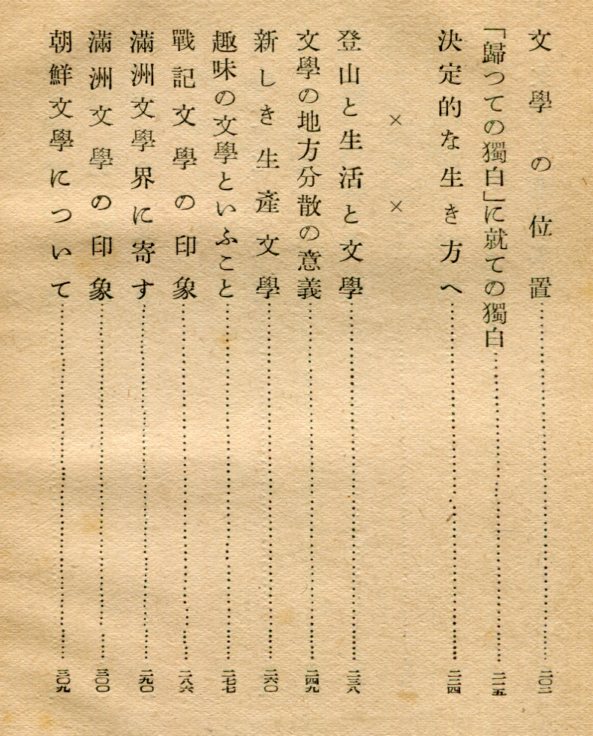 文學の位置……二〇二
「歸つての獨白」に就ての獨白……二一五
決定的な生き方へ……二二四
× ×
登山と生活と文學……二三八
文學の地方分散の意義……二四九
新しき生產文學……二六〇
趣味の文學といふこと……二七七
戰記文學の印象……二八六
滿洲文學界に寄す……二九〇
滿洲文學の印象……三〇〇
朝鮮文學について……三〇九